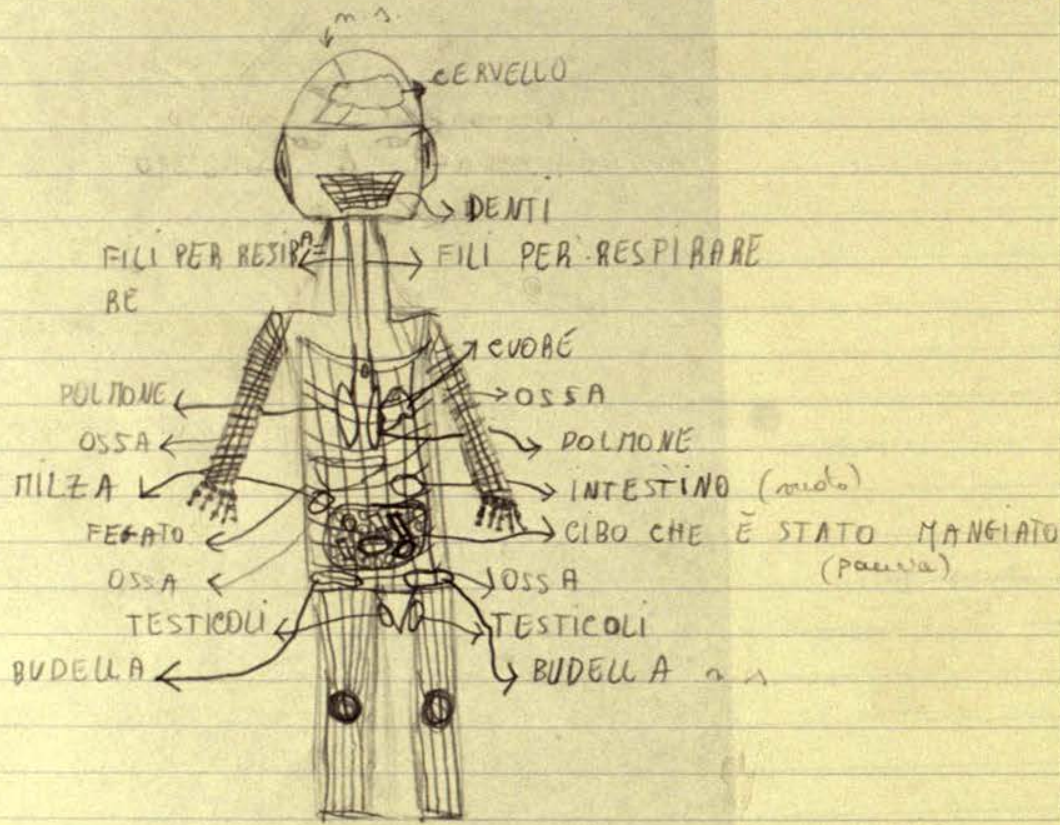 n.s.
CERVELLO
DENTI
FILI PER RESIPA=
RE
FILI PER RESPIRARE
CUORE
POLMONE
OSSA
OSSA
POLMONE
MILZA
INTESTINO
FEGATO
CIBO CHE È STATO MANGIATO
(pancia)
OSSA
OSSA
TESTICOLI
TESTICOLI
BUDELLA
BUDELLA n s